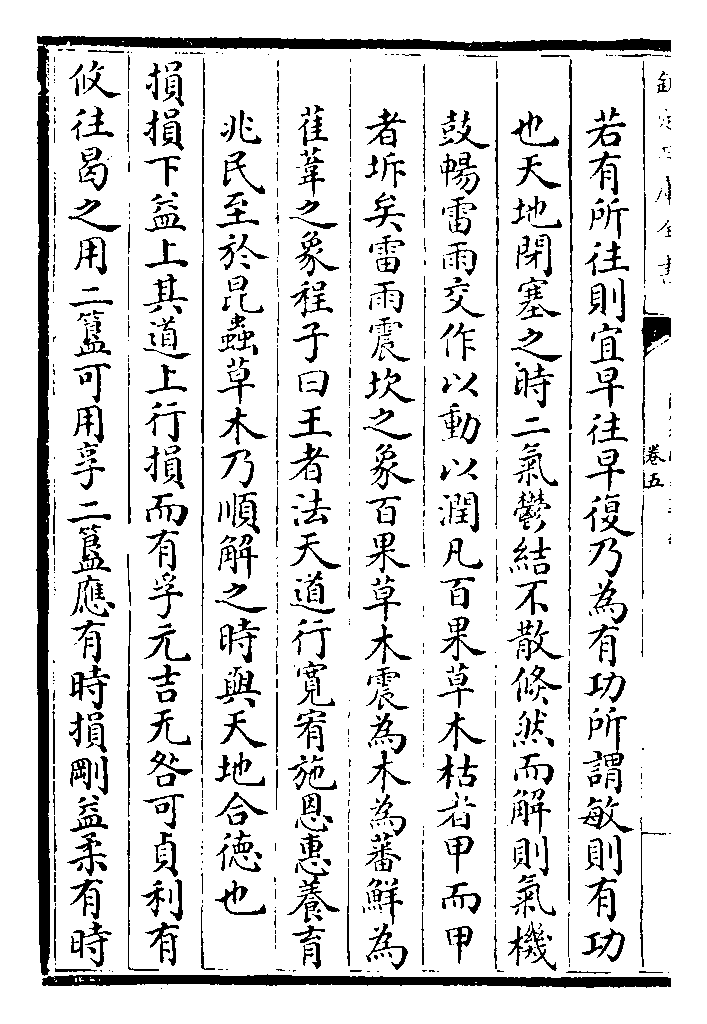 若有所往則宜早往早復乃為有功所謂敏則有功
也天地閉塞之時二氣鬱結不散倐然而解則氣機
鼓暢雷雨交作以動以潤凡百果草木枯者甲而甲
者坼矣雷雨震坎之象百果草木震為木為蕃鮮為
萑葦之象程子曰王者法天道行寛宥施恩惠養育
兆民至於昆蟲草木乃順解之時與天地合徳也
損損下益上其道上行損而有孚元吉无咎可貞利有
攸往曷之用二簋可用享二簋應有時損剛益柔有時
卷五